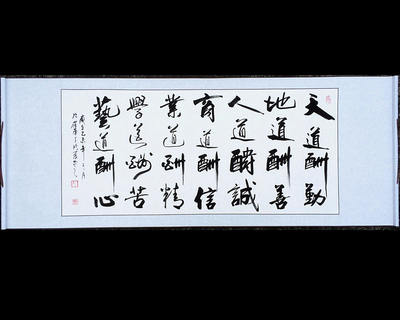 天道酬勤
地道酬善
人道酬誠
商道酬信
業道酬精
學道酬苦
藝道酬心